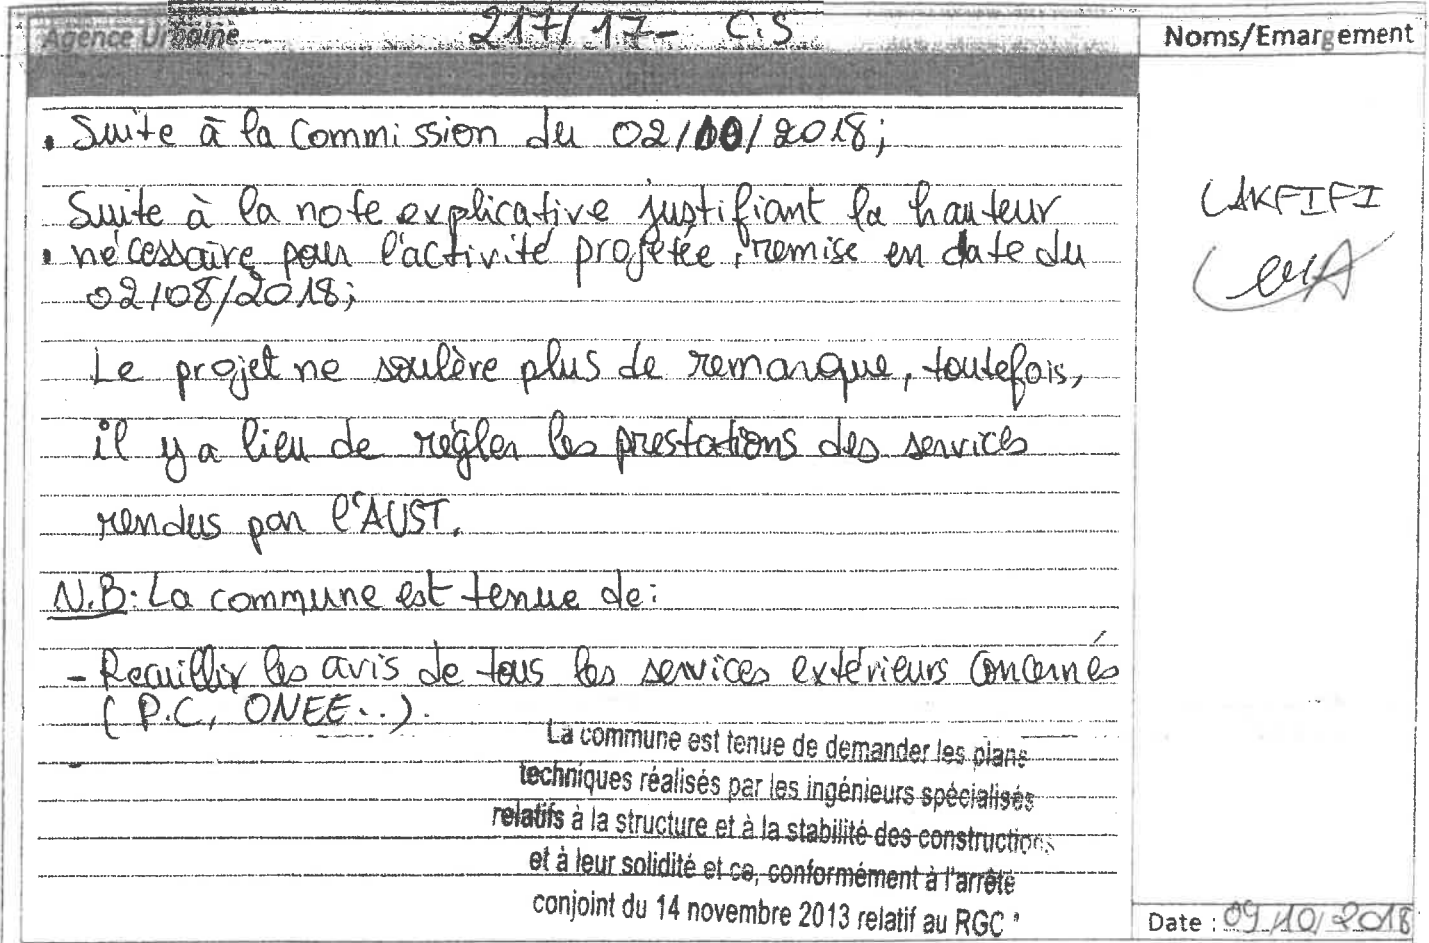 Agence Urbaine 217/17- C.S
Noms/Emargement
. Suite à la Commission du 02/10/2018;
Suite à la note explicative justifiant la hauteur
. nécessaire pour l'activité projetée, remise en date du
02/08/2018;
Le projet ne soulère plus de remarque, toutefois,
il y a lieu de régler les prestations des services
rendus par l'AUST.
N.B: La commune est tenue de:
- Recuillir les avis de tous les services extérieurs Concernés
( P.C, ONEE...).
La commune est tenue de demander les plans
techniques réalisés par les ingénieurs spécialisés
relatifs à la structure et à la stabilité des constructions
et à leur solidité et ce, conformément à l'arrêté
conjoint du 14 novembre 2013 relatif au RGC "
LAKFIFI
Date : 09/10/2018